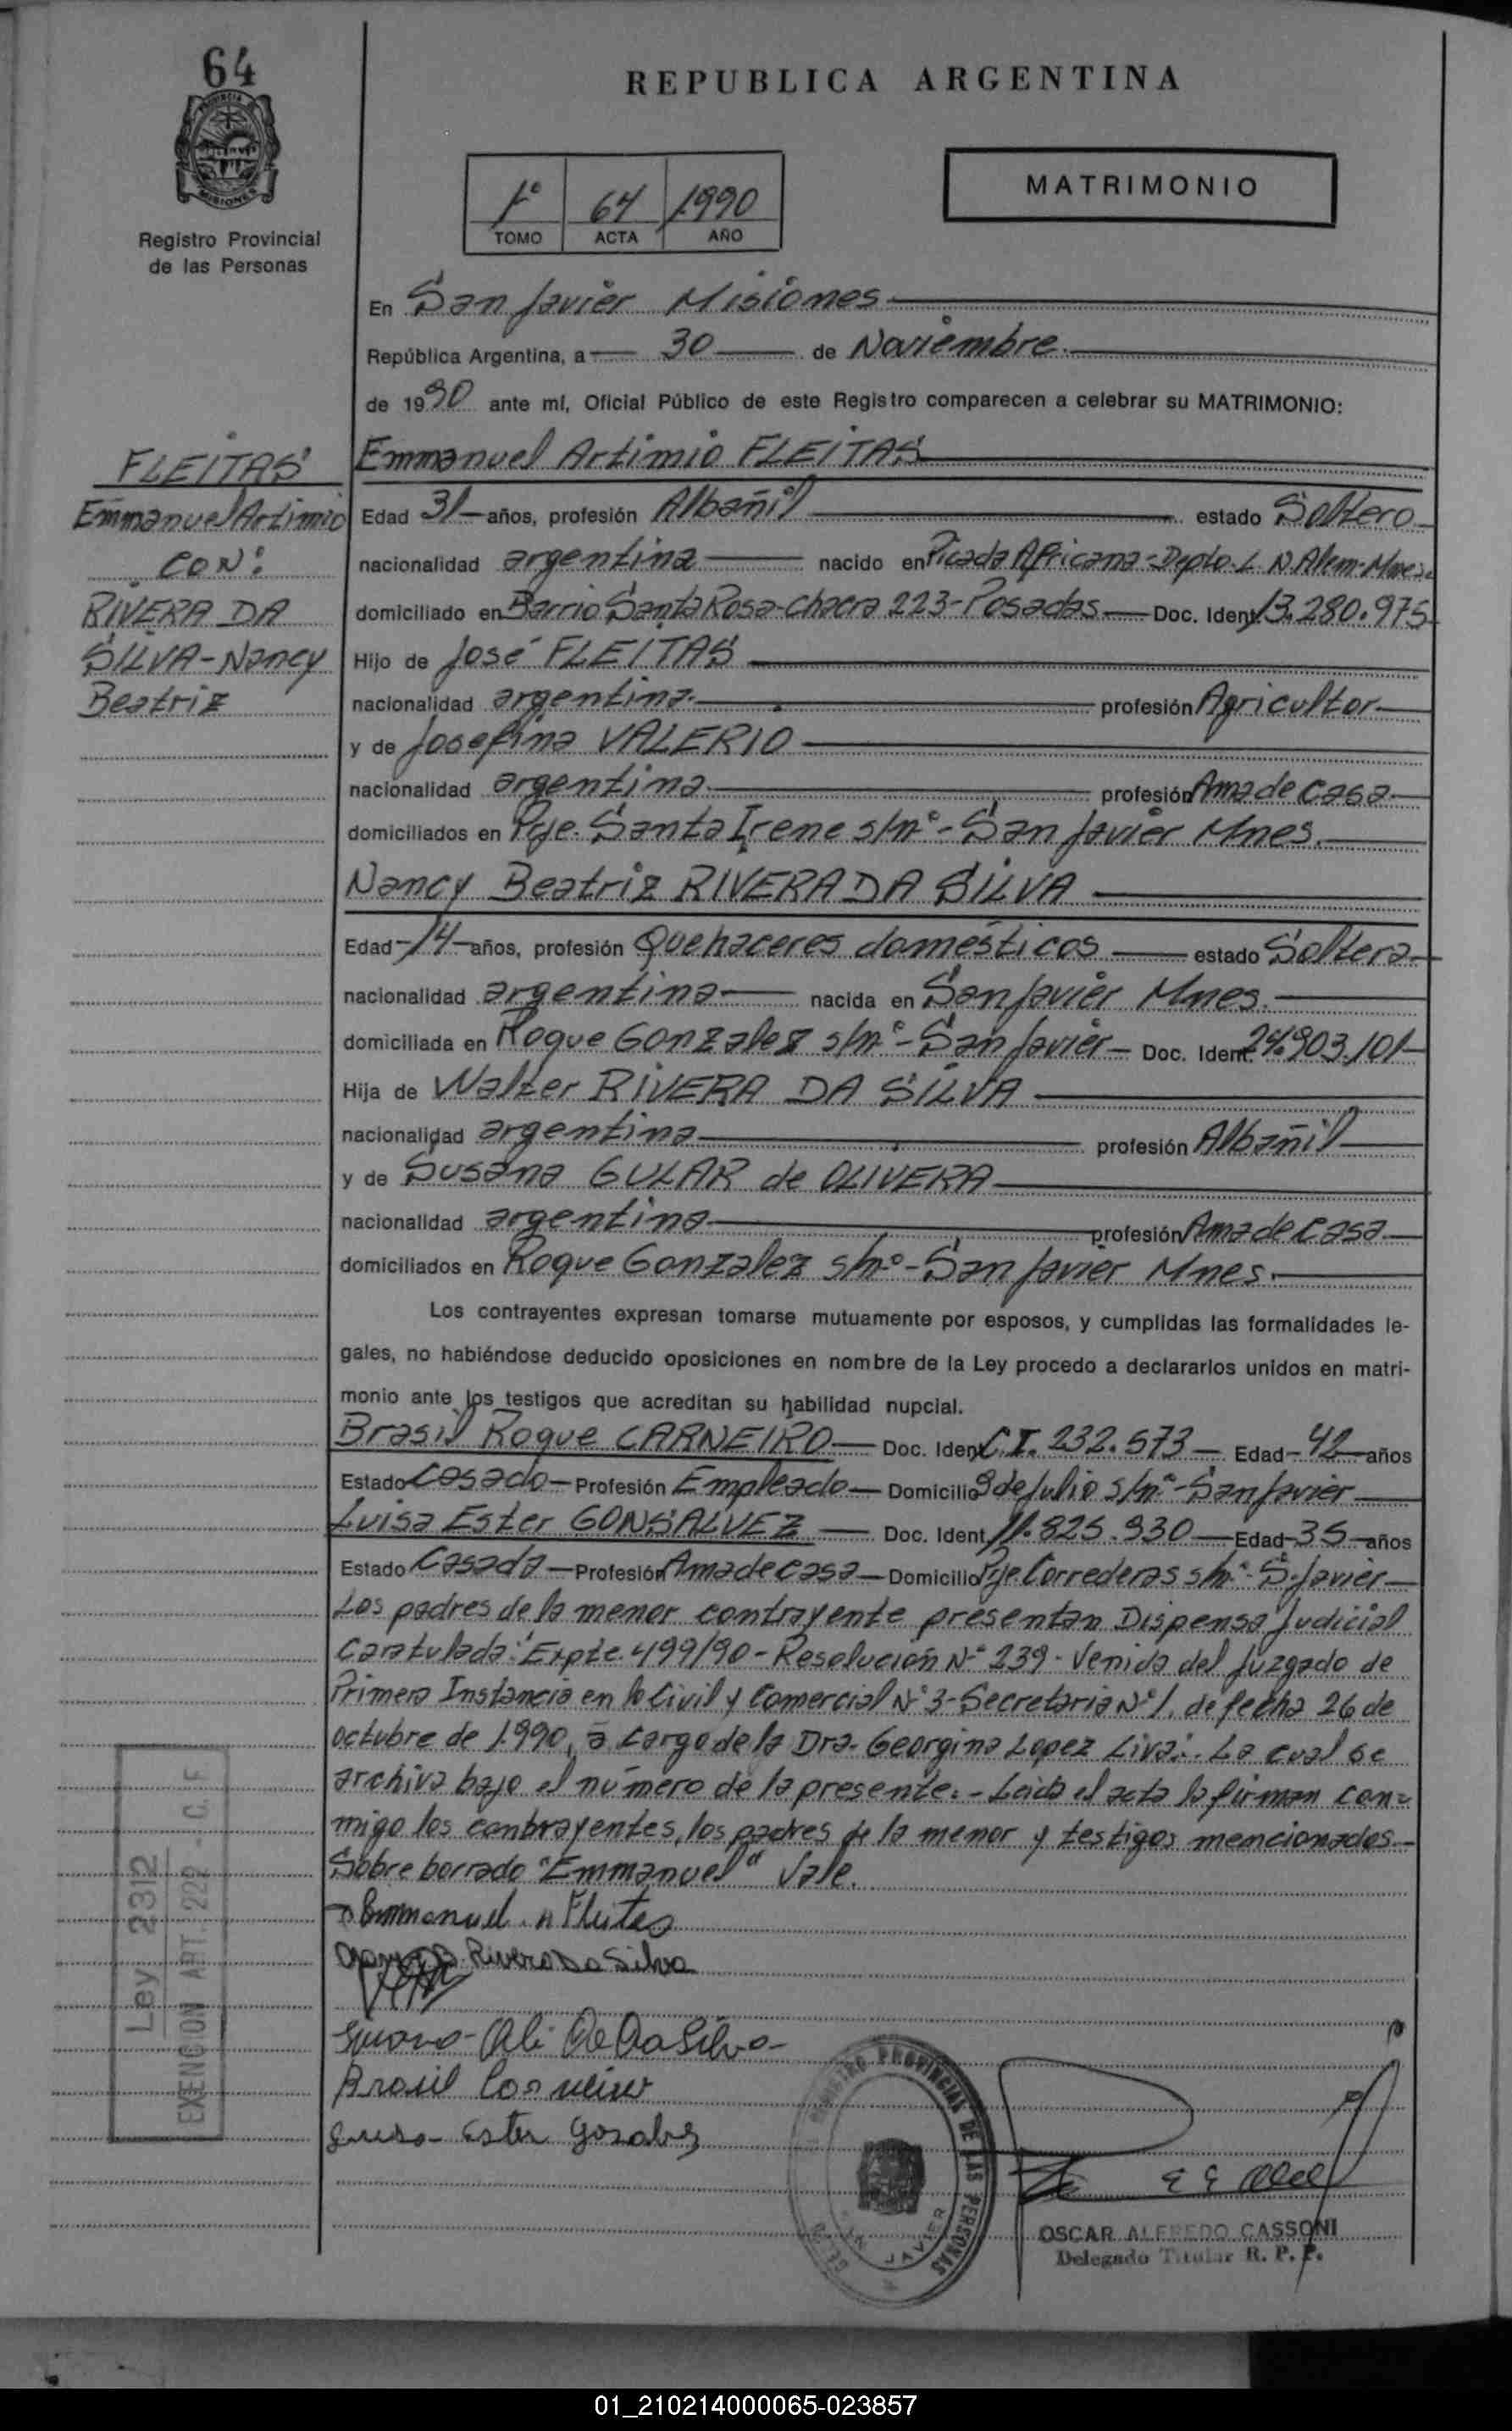 64
REPUBLICA ARGENTINA
PROVINCIA
MISIONES
Registro Provincial
de las Personas
1º 64 1.990
TOMO ACTA AÑO
MATRIMONIO
En San Javier Misiones
República Argentina, a 30 de Noviembre
de 1990 ante mí, Oficial Público de este Registro comparecen a celebrar su MATRIMONIO:
FLEITAS
Emmanuel Artimio
CON:
RIVERA DA
SILVA-Nancy
Beatriz
Emmanuel Artimio FLEITAS
Edad 31 años, profesión Albañil estado Soltero
nacionalidad argentina nacido en Picada Africana-Depto. L. N. Alem-Mnes.
domiciliado en Barrio Santa Rosa-chacra 223-Posadas Doc. Ident. 13.280.975
Hijo de José FLEITAS
nacionalidad argentina profesión Agricultor
y de Josefina VALERIO
nacionalidad argentina profesión Ama de casa
domiciliados en Pje. Santa Irene s/nº-San Javier Mnes.
Nancy Beatriz RIVERA DA SILVA
Edad 14 años, profesión Quehaceres domésticos estado Soltera
nacionalidad argentina nacida en San Javier Mnes.
domiciliada en Roque Gonzalez s/nº-San Javier Doc. Ident. 24.903.101
Hija de Walter RIVERA DA SILVA
nacionalidad argentina profesión Albañil
y de Susana GULAR de OLIVERA
nacionalidad argentina profesión Ama de casa
domiciliados en Roque Gonzalez s/nº-San Javier Mnes.
Los contrayentes expresan tomarse mutuamente por esposos, y cumplidas las formalidades le-
gales, no habiéndose deducido oposiciones en nombre de la Ley procedo a declararlos unidos en matri-
monio ante los testigos que acreditan su habilidad nupcial.
Brasil Roque CARNEIRO Doc. Ident. C.I. 232.573 Edad 42 años
Estado Casado Profesión Empleado Domicilio 9 de Julio s/nº-San Javier
Luisa Ester GONSALVEZ Doc. Ident. 11.825.930 Edad 35 años
Estado Casada Profesión Ama de casa Domicilio Pje. Correderas s/nº-S. Javier
Los padres de la menor contrayente presentan Dispensa Judicial
Caratulada: "Expte. 499/90-Resolución Nº 239-Venida del Juzgado de
Primera Instancia en lo Civil y Comercial Nº 3-Secretaria Nº 1. de fecha 26 de
octubre de 1.990, a cargo de la Dra. Georgina Lopez Liva. La cual se
archiva bajo el número de la presente.-Leida el acta la firman con=
migo los contrayentes, los padres de la menor y testigos mencionados
Sobre borrado "Emmanuel" Vale.
Ley 2312
EXENCION ART. 222 - C. F.
Emmanuel A Fleitas
B. Rivera Da Silva
De Da Silva
Brasil Carneiro
Ester
REGISTRO PROVINCIAL DE LAS PERSONAS
SAN JAVIER
OSCAR ALFREDO CASSONI
Delegado Titular R. P. P.
01_210214000065-023857